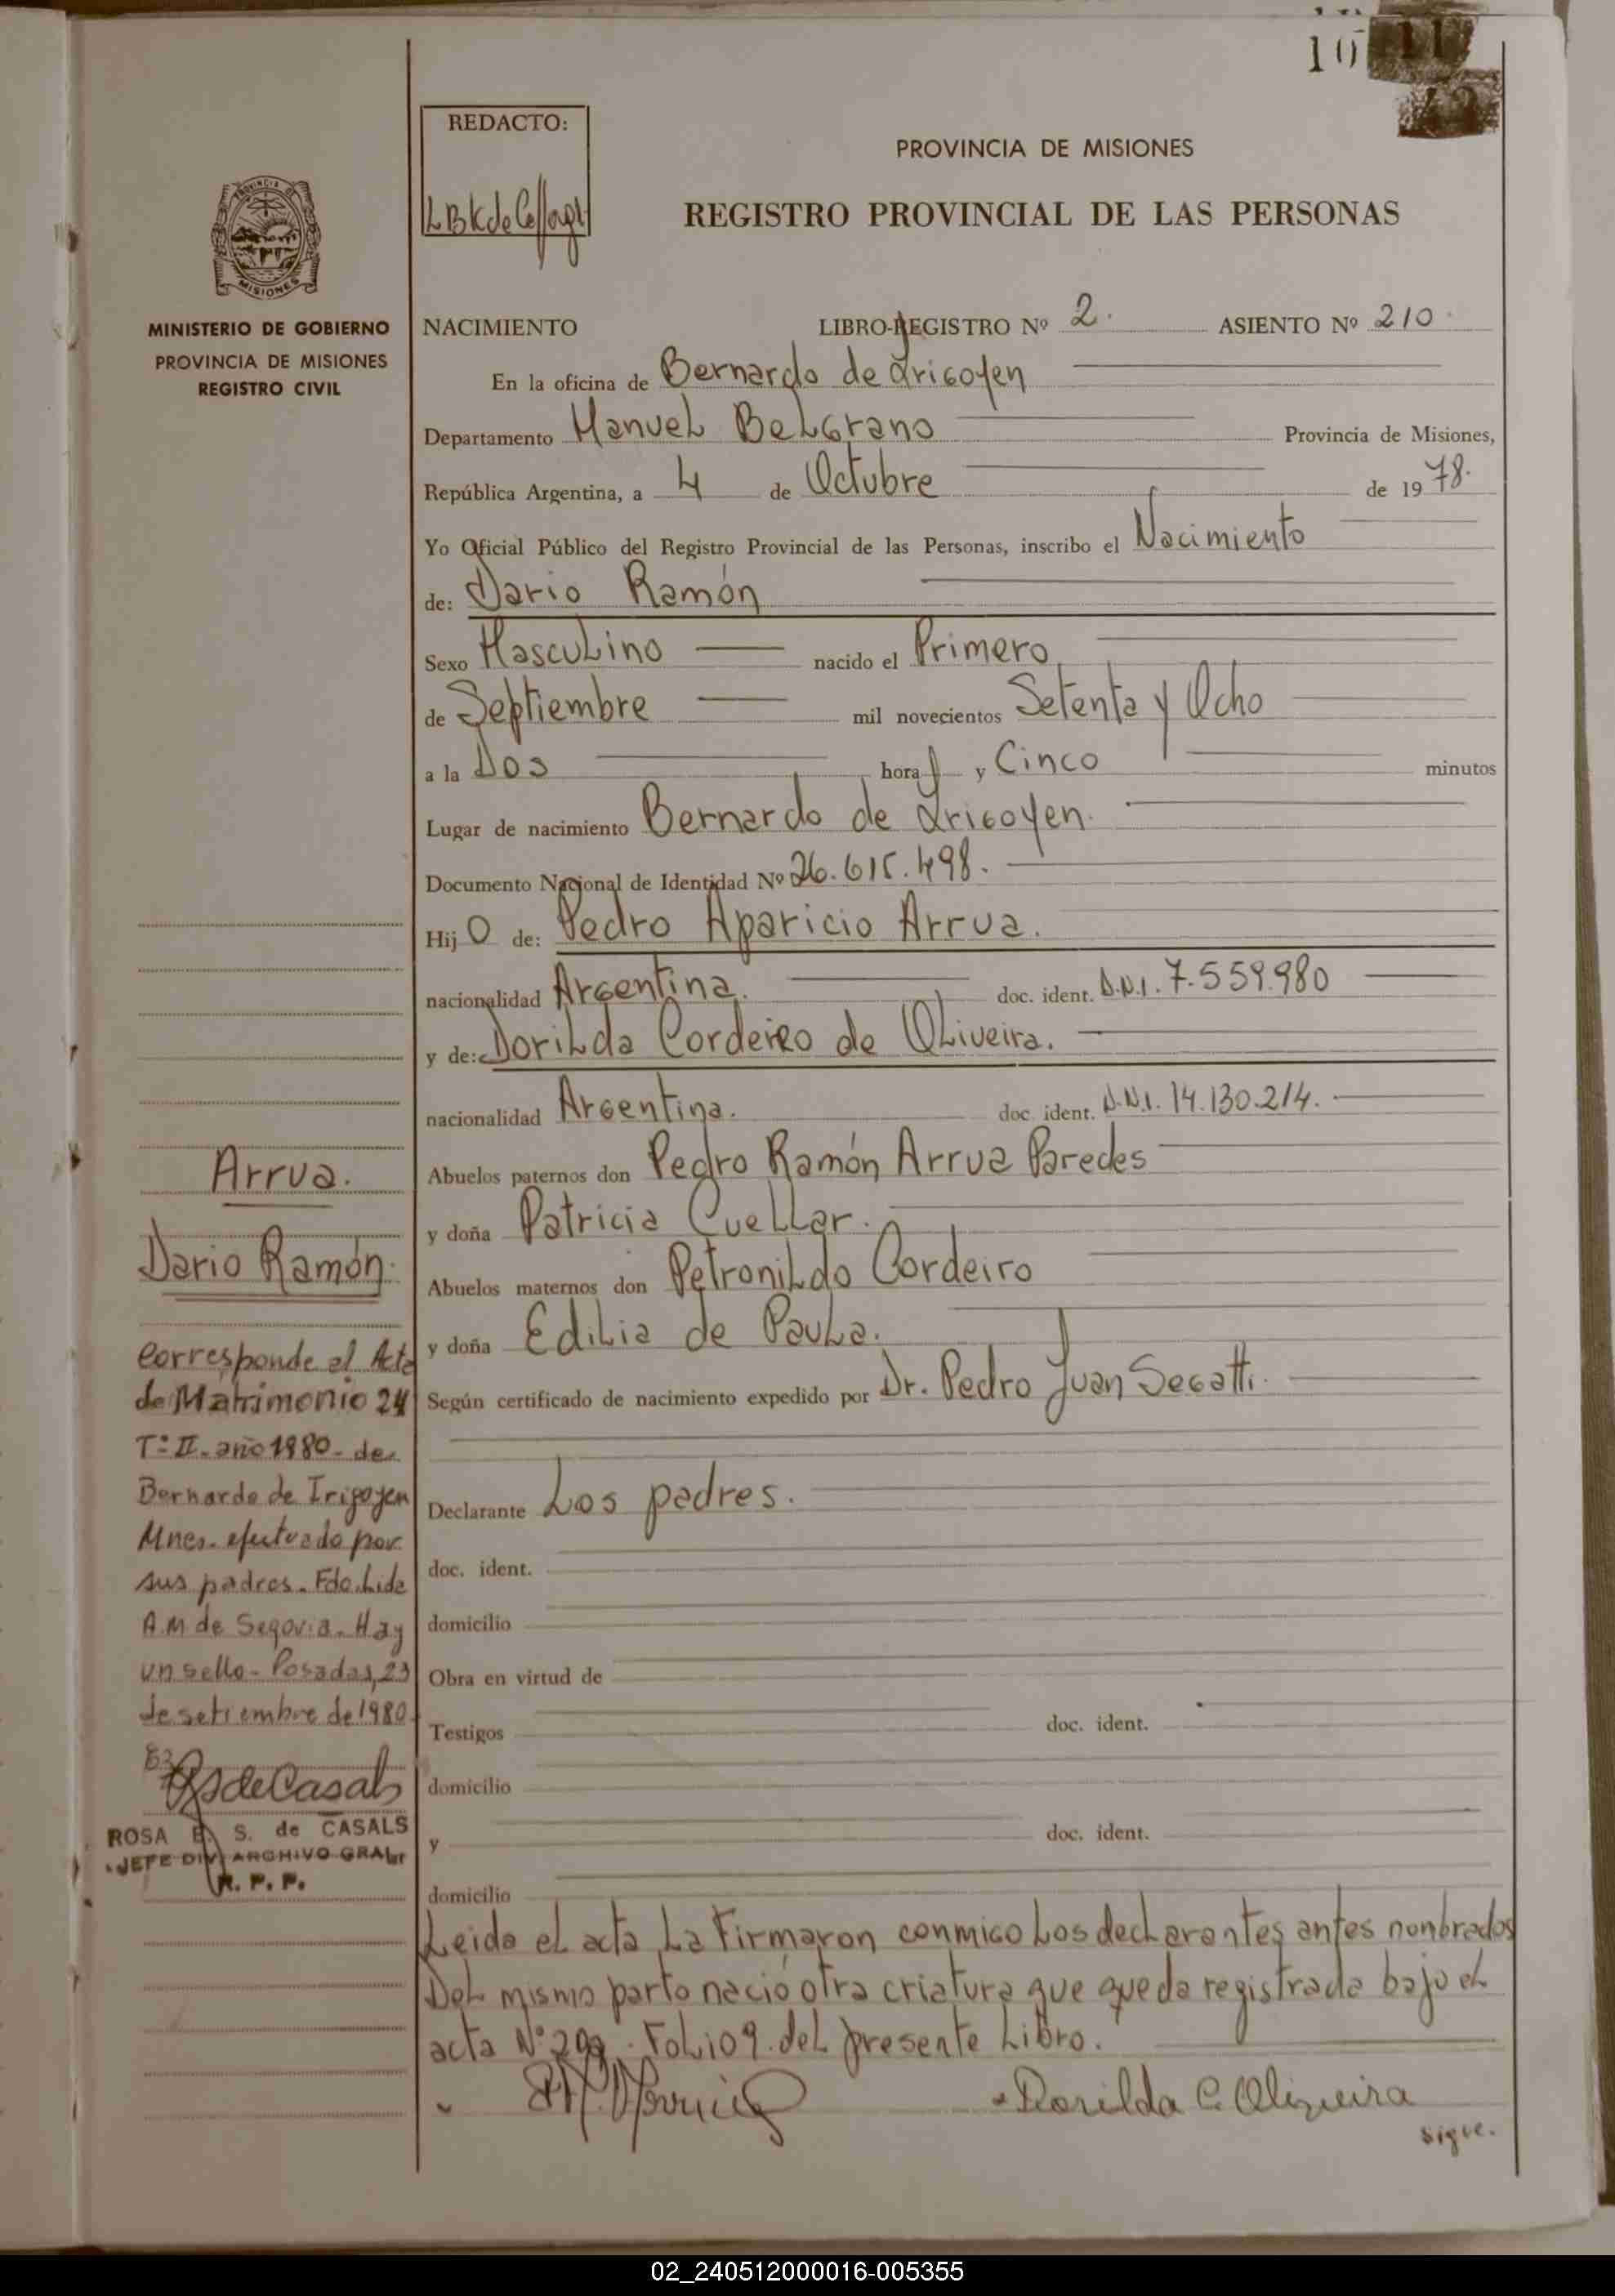 10 11
42
REDACTO:
PROVINCIA DE MISIONES
REGISTRO PROVINCIAL DE LAS PERSONAS
PROVINCIA DE
MISIONES
MINISTERIO DE GOBIERNO
PROVINCIA DE MISIONES
REGISTRO CIVIL
NACIMIENTO LIBRO-REGISTRO Nº 2. ASIENTO Nº 210
En la oficina de Bernardo de Irigoyen
Departamento Manuel Belgrano Provincia de Misiones,
República Argentina, a 4 de Octubre de 1978.
Yo Oficial Público del Registro Provincial de las Personas, inscribo el Nacimiento
de: Dario Ramón
Sexo Masculino nacido el Primero
de Septiembre mil novecientos Setenta y Ocho
a la Dos hora y Cinco minutos
Lugar de nacimiento Bernardo de Irigoyen.
Documento Nacional de Identidad Nº 26.615.498.
Hij O de: Pedro Aparicio Arrua.
nacionalidad Argentina. doc. ident. D.N.I. 7.559.980
y de: Dorilda Cordeiro de Oliveira.
nacionalidad Argentina. doc. ident. D.N.I. 14.130.214.
Abuelos paternos don Pedro Ramón Arrua Paredes
y doña Patricia Cuellar.
Abuelos maternos don Petronildo Cordeiro
y doña Edilia de Paula.
Según certificado de nacimiento expedido por Dr. Pedro Juan Segatti.
Declarante Los padres.
doc. ident.
domicilio
Obra en virtud de
Testigos doc. ident.
domicilio
y doc. ident.
domicilio
Leida el acta La Firmaron conmigo Los declarantes antes nonbrados
Del mismo parto nació otra criatura que queda registrada bajo el
acta Nº 209. Folio 9. del presente Libro.
Dorilda C. Oliveira
sigue.
Arrua.
Dario Ramón.
Corresponde al Acta
de Matrimonio 24
Tº II. año 1980- de
Bernardo de Irigoyen
Mnes. efectuado por
sus padres. Fdo. Lida
A.M de Segovia. Hay
un sello- Posadas, 23
de setiembre de 1980
deCasals
ROSA E. S. de CASALS
JEFE DIV. ARCHIVO GRAL.
R. P. P.
02_240512000016-005355